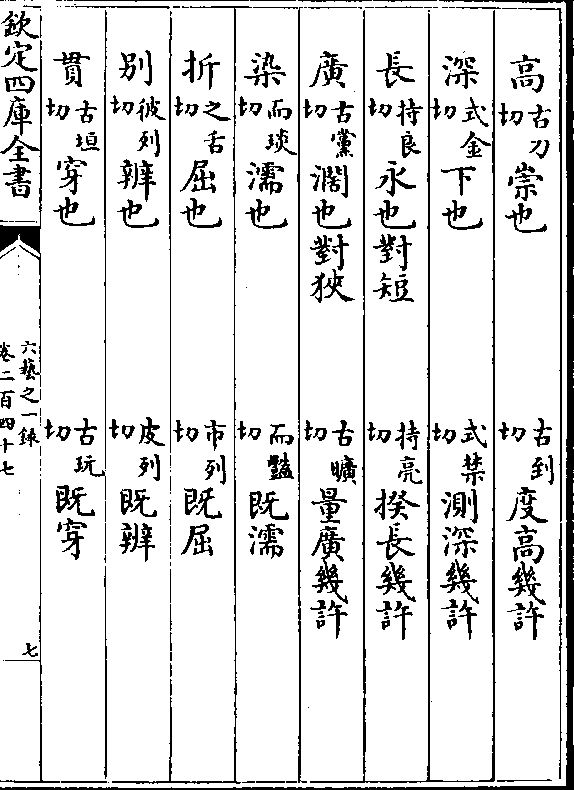 高古刀切崇也 古到切度高幾許
深式金切下也 式禁切測深幾許
長持良切永也對短 持亮切揆長幾許
廣古黨切濶也對狹 古曠切量廣幾許
染而琰切濡也 而豔切既濡
折之舌切屈也 市列切既屈
別彼列切辨也 皮列切既辨
貫古垣切穿也 古玩切既穿
欽定四庫全書
六藝之一錄
卷二百四十七
七